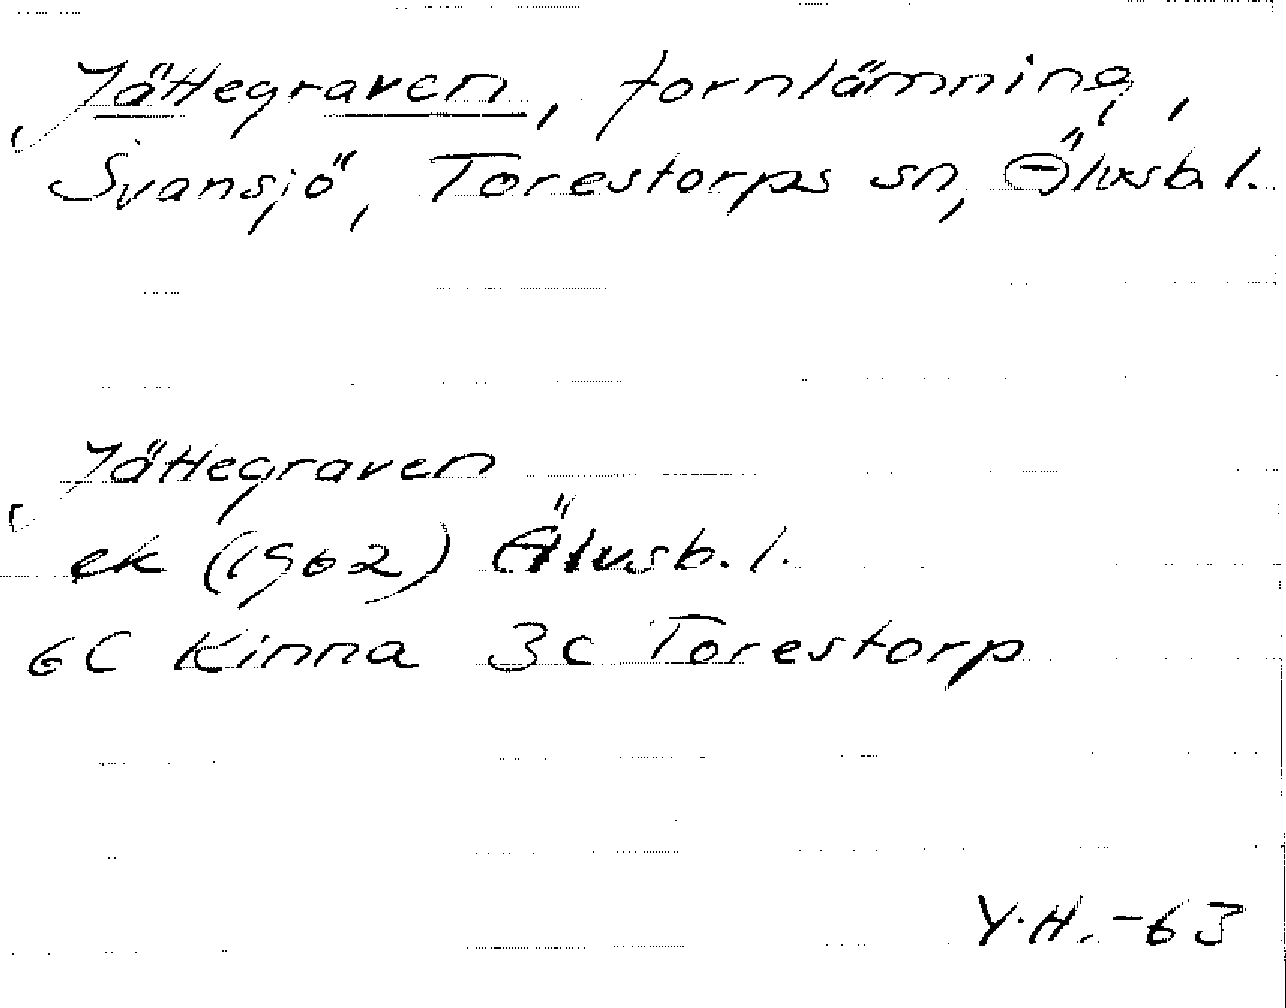 Jättegraven, fornlämning,
Svansjö, Torestorps sn, Älvsb. l.
Jättegraven
ek (1962) Älvsb. l.
6C Kinna 3c Torestorp
Y.H. -63